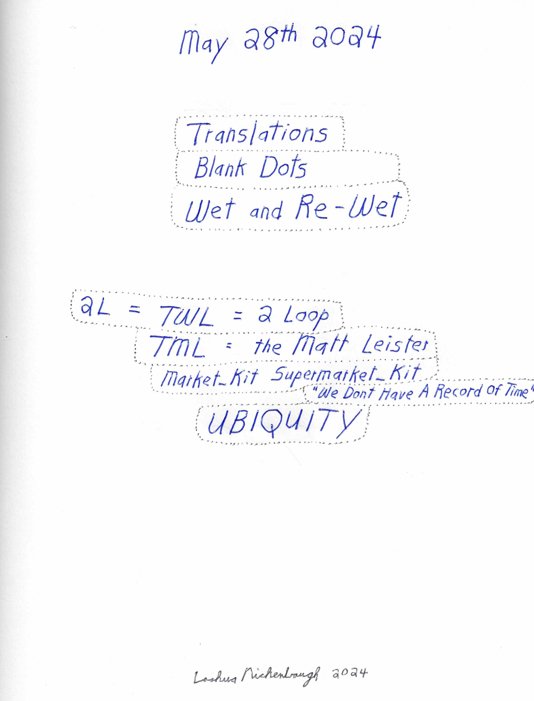 May 28th 2024
Translations
Blank Dots
Wet and Re-Wet
2L = TWL = 2 Loop
TML = the Matt Leister
Market_Kit Supermarket_Kit
"We Dont Have A Record Of Time"
UBIQUITY
2024